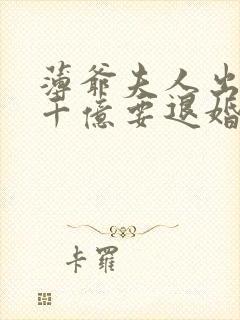 薄爷夫人出
十億要退婚
卡羅